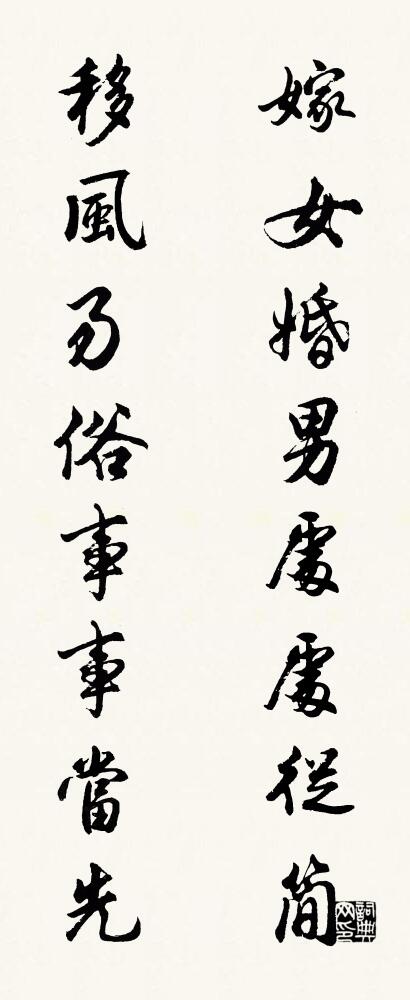 嫁女婚男處處從簡
移風易俗事事當先
詞典網印